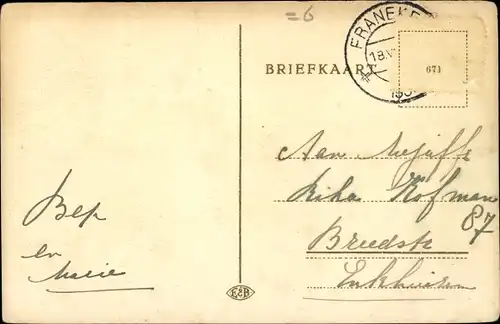 =6
FRANEKE
18.V
BRIEFKAART
671
Aan Mejuffr
Rika Kofman
87
Breedstr
Enkhuizen
Bep
en
Marie
E&B